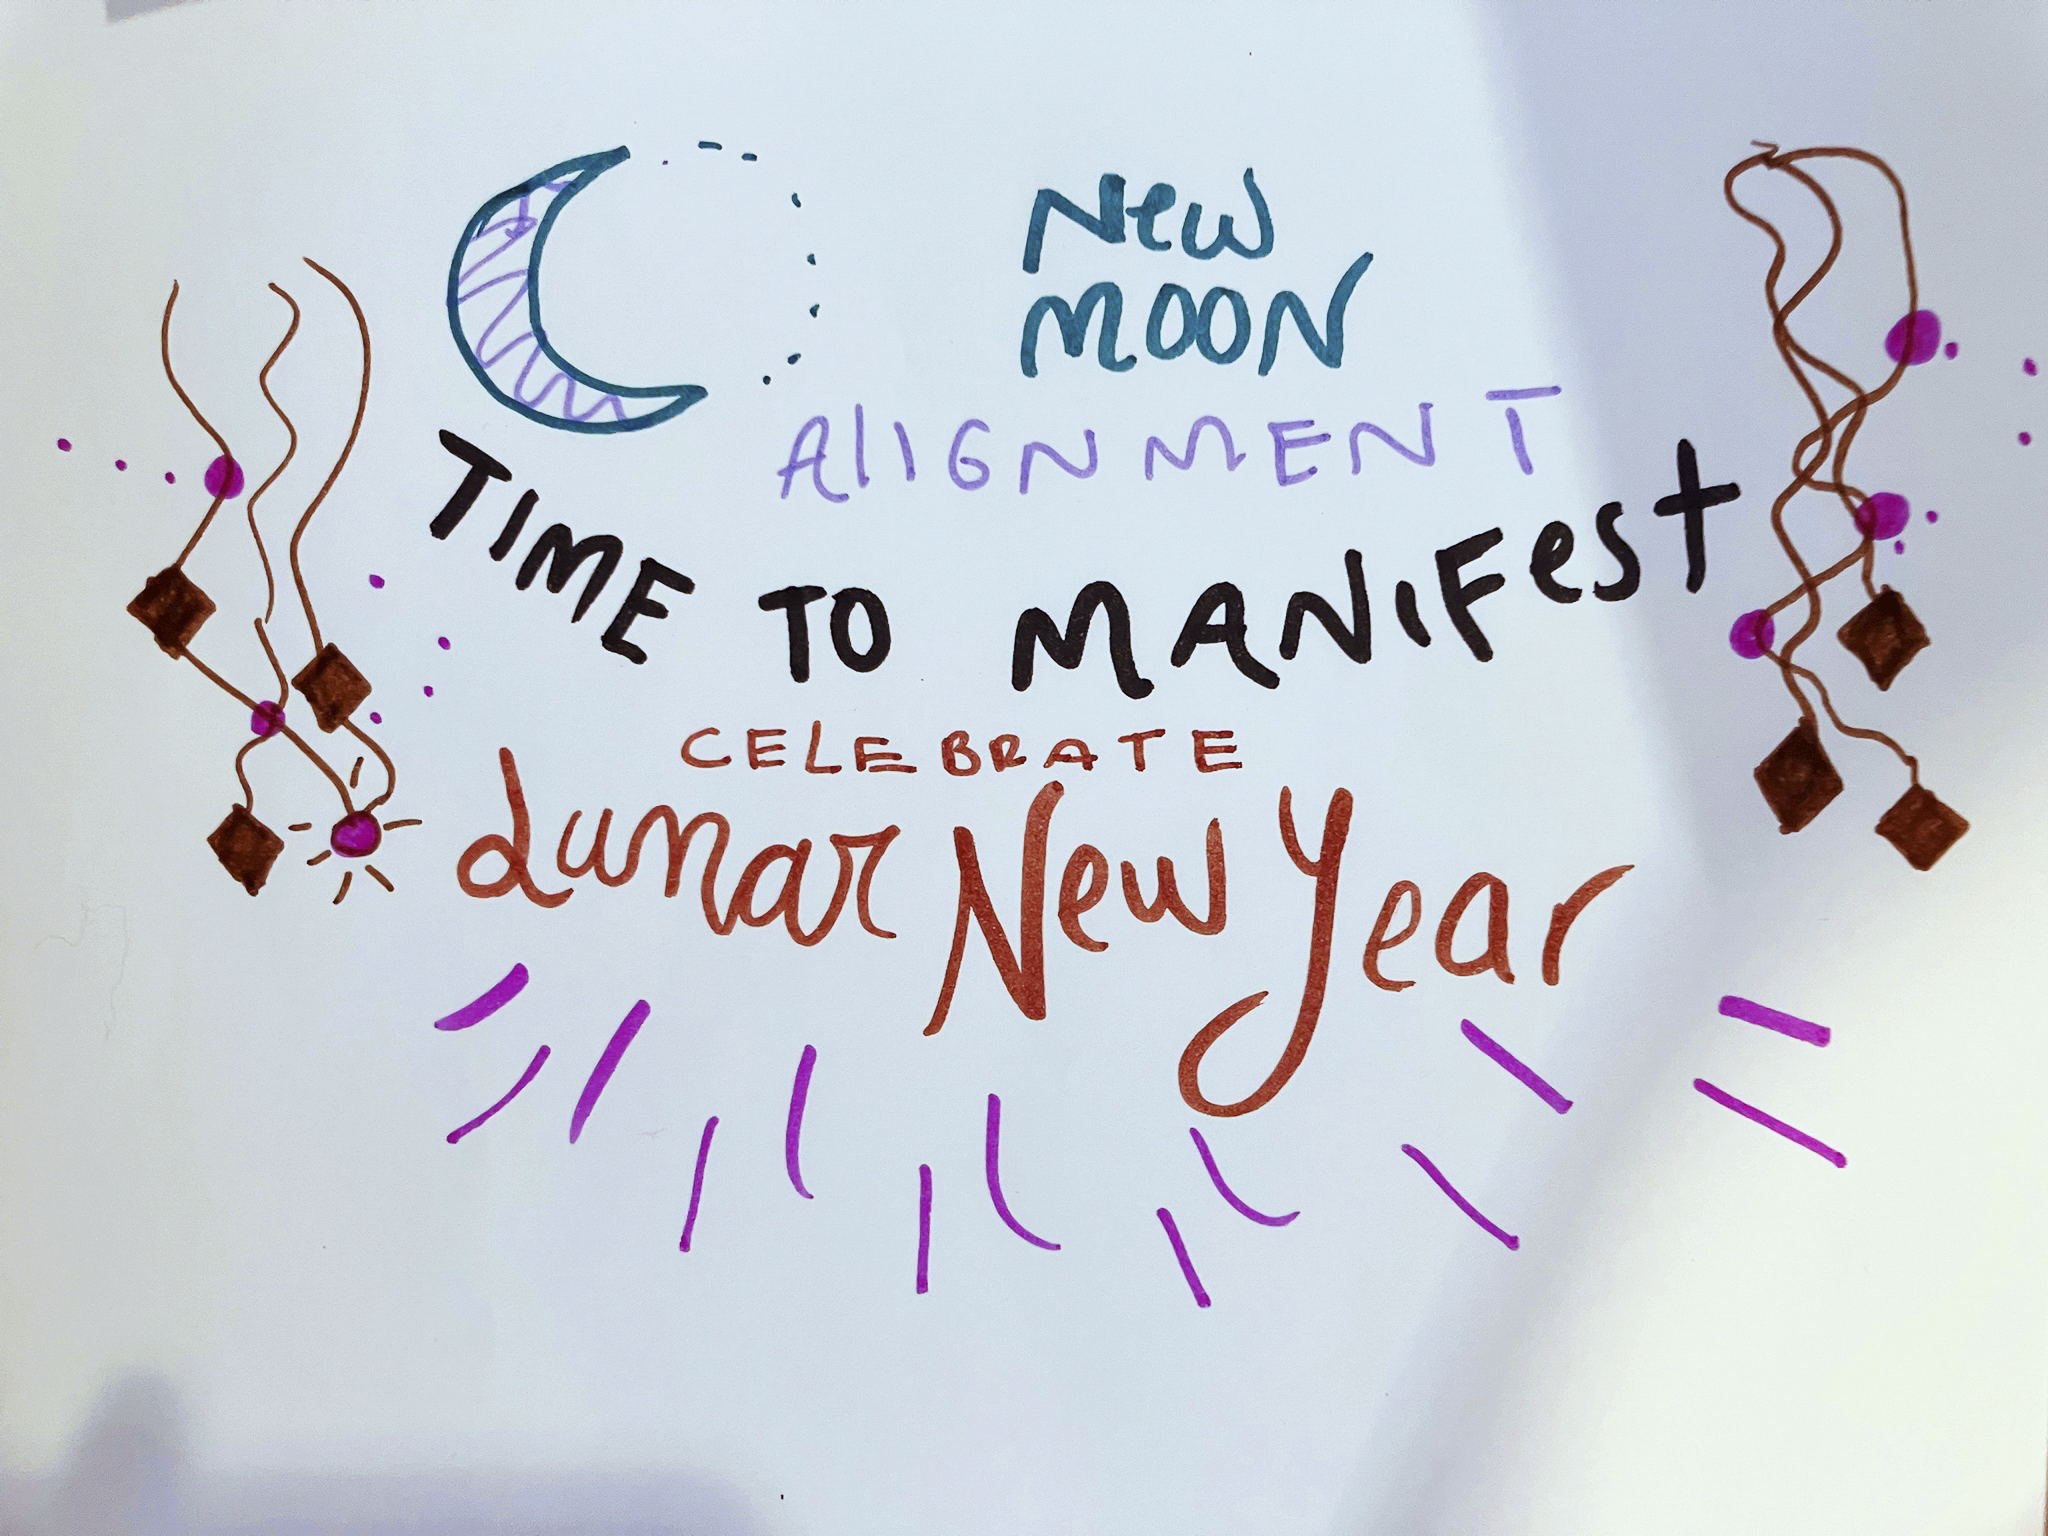 New
MOON
AlIGNMENT
TIME TO MANIFest
CELEBRATE
Lunar New Year